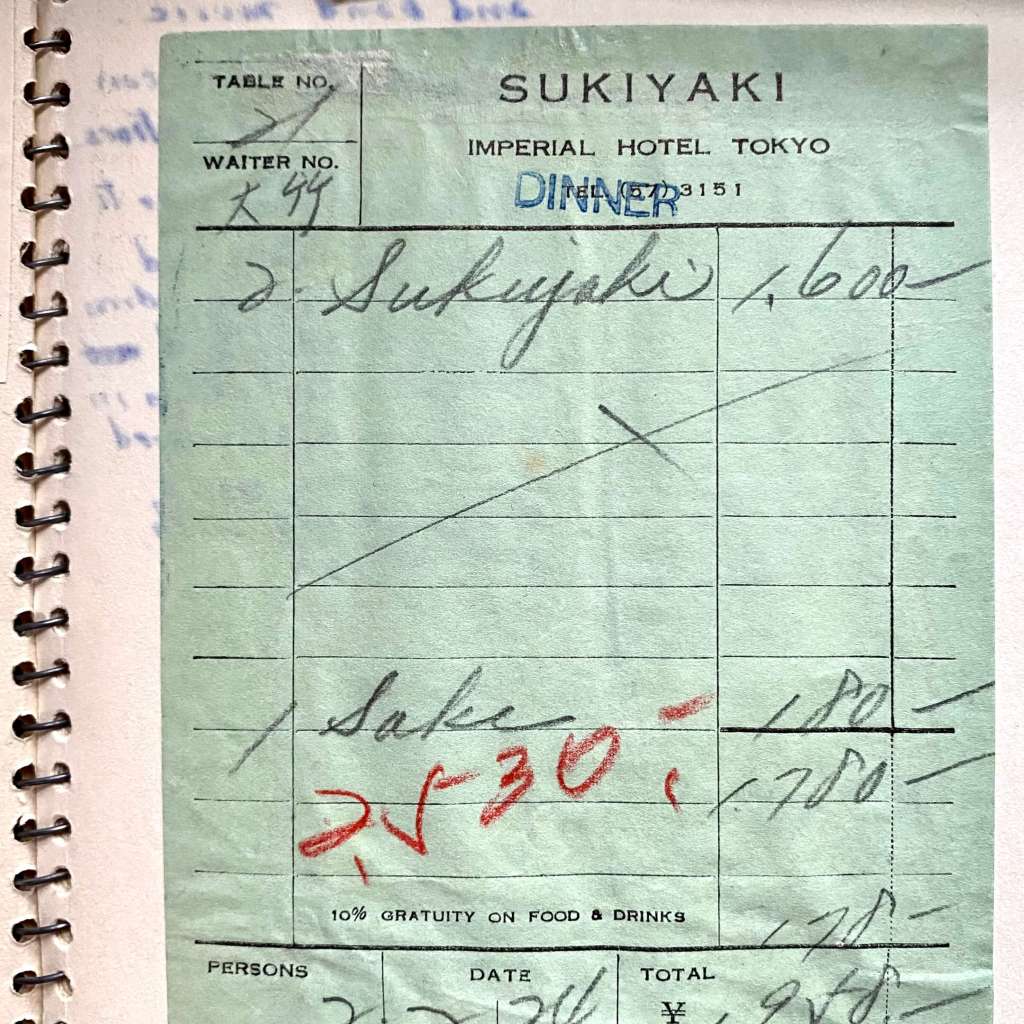 TABLE NO.
21
WAITER NO.
SUKIYAKI
IMPERIAL HOTEL TOKYO
TEL (57) 3151
DINNER
2 Sukiyaki 1,600-
1 Sake 180-
2,530-
1,780-
10% GRATUITY ON FOOD & DRINKS 178-
PERSONS DATE TOTAL
2 2 26 ¥ 1,958-